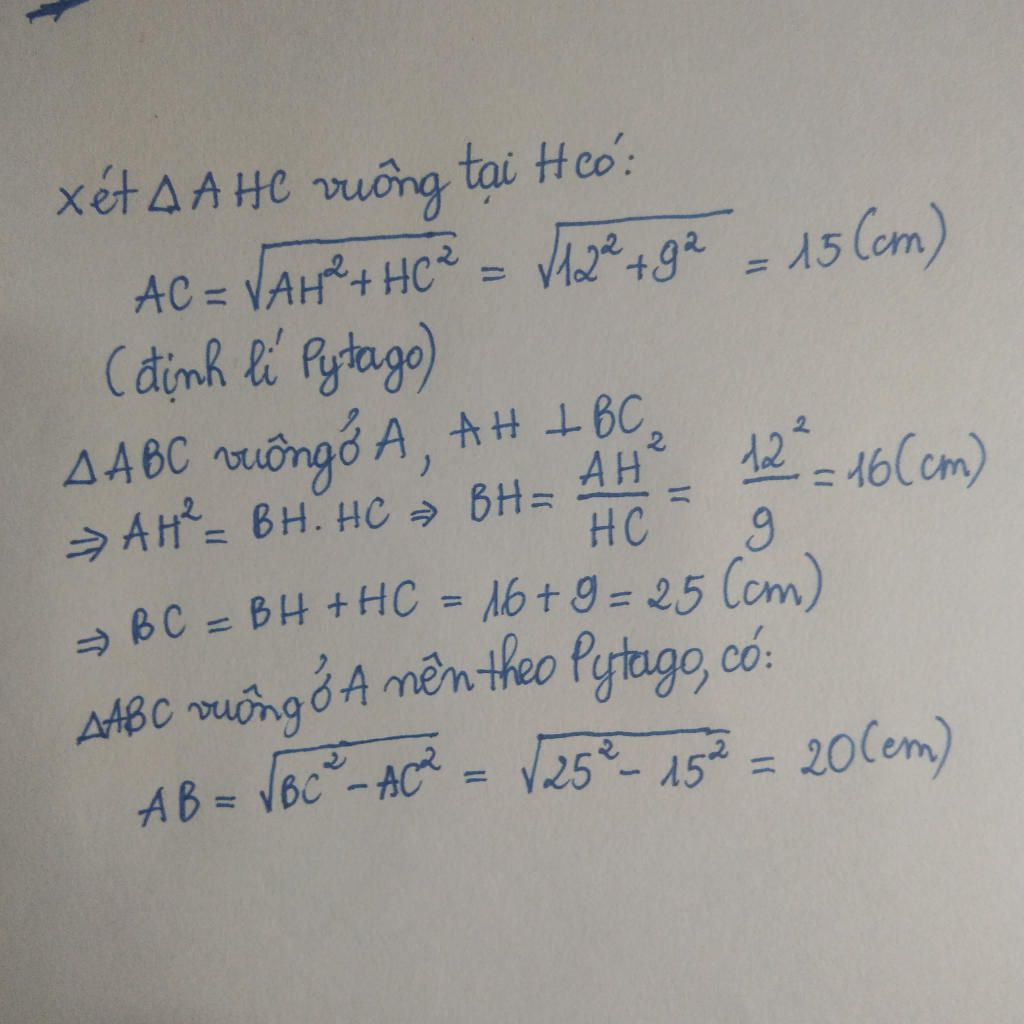 xét ΔAHC vuông tại H có:
AC = √(AH² + HC²) = √(12² + 9²) = 15 (cm)
(định lí Pytago)
ΔABC vuông ở A, AH ⊥ BC
⇒ AH² = BH . HC ⇒ BH = AH²/HC = 12²/9 = 16 (cm)
⇒ BC = BH + HC = 16 + 9 = 25 (cm)
ΔABC vuông ở A nên theo Pytago, có:
AB = √(BC² - AC²) = √(25² - 15²) = 20 (cm)